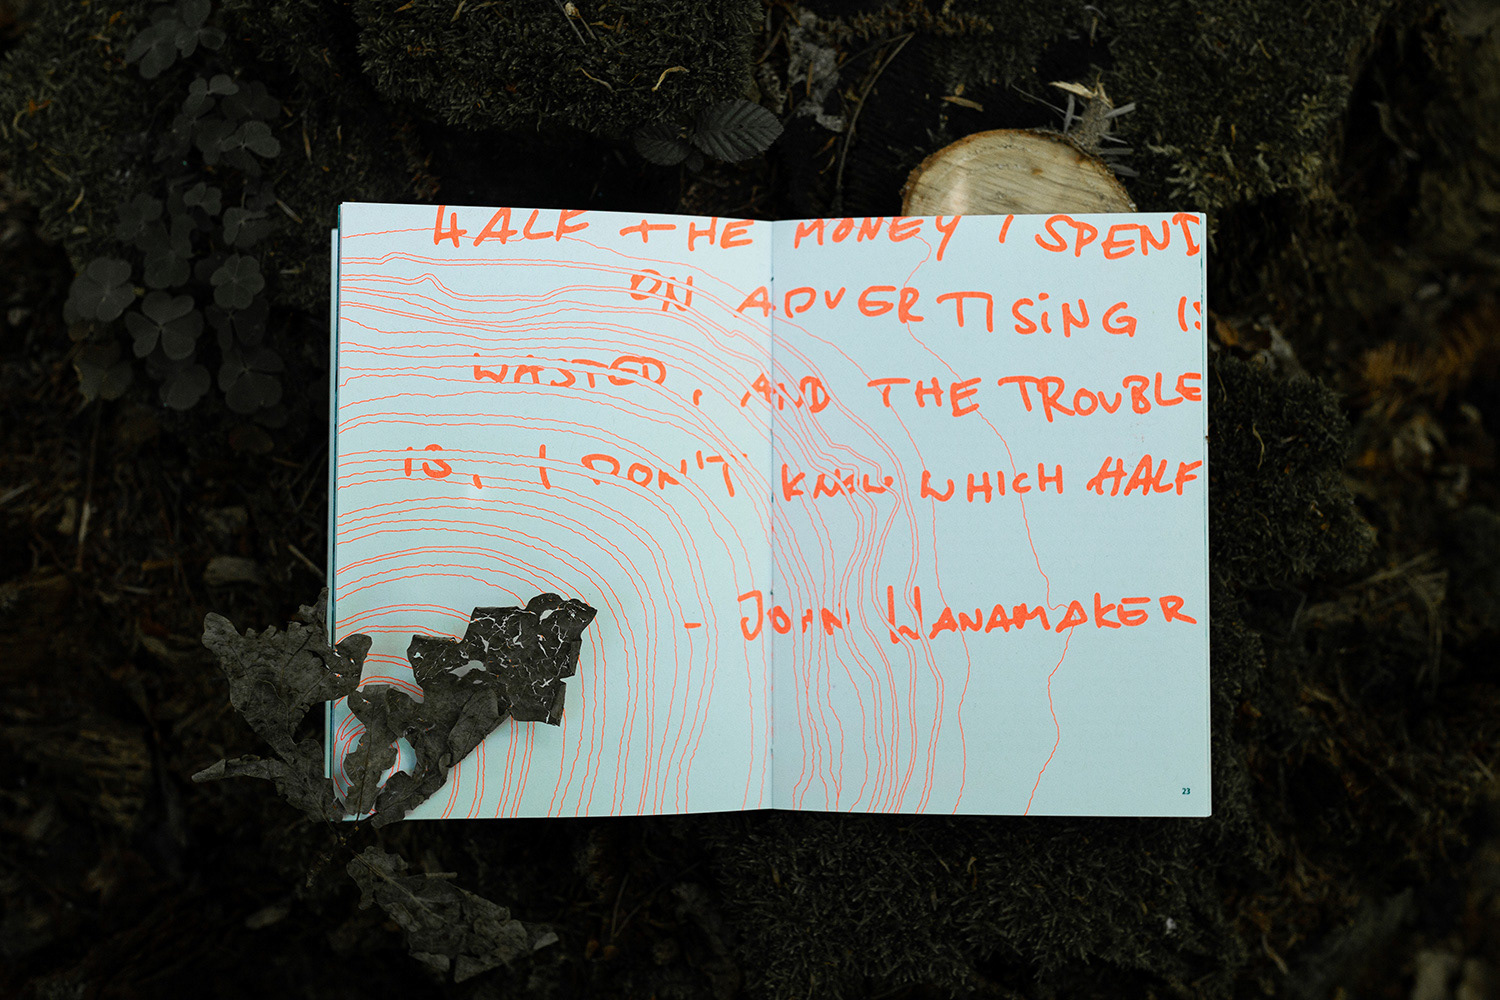 HALF THE MONEY I SPEND
ON ADVERTISING IS
WASTED, AND THE TROUBLE
IS, I DON'T KNOW WHICH HALF
- JOHN WANAMAKER
23